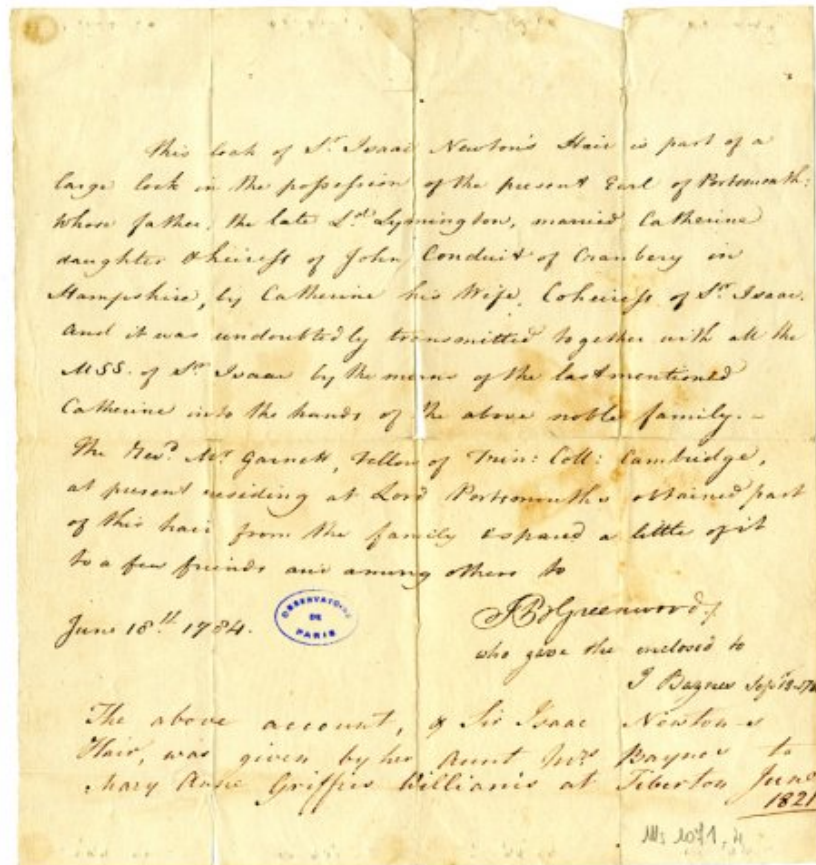 This lock of Sr. Isaac Newton's Hair is part of a
large lock in the possession of the present Earl of Portsmouth:
whose father, the late Ld. Lymington, married Catherine
daughter & heiress of John Conduit of Cranbery in
Hampshire, by Catherine his Wife, Coheiress of Sr. Isaac.
And it was undoubtedly transmitted together with all the
MSS. of Sr. Isaac by the means of the last mentioned
Catherine into the hands of the above noble family. –
The Revd. Mr. Garnett, Fellow of Trin: Coll: Cambridge,
at present residing at Lord Portsmouth's obtained part
of this hair from the family & spared a little of it
to a few friends and among others to
June 18th. 1784.
OBSERVATOIRE
DE
PARIS
Greenwood
who gave the enclosed to
J Baynes Sept
The above account, of Sir Isaac Newton's
Hair, was given by her Aunt Mrs Baynes to
Mary Anne Griffies Williams at Tiberton June
1821
Ms 1071, 4